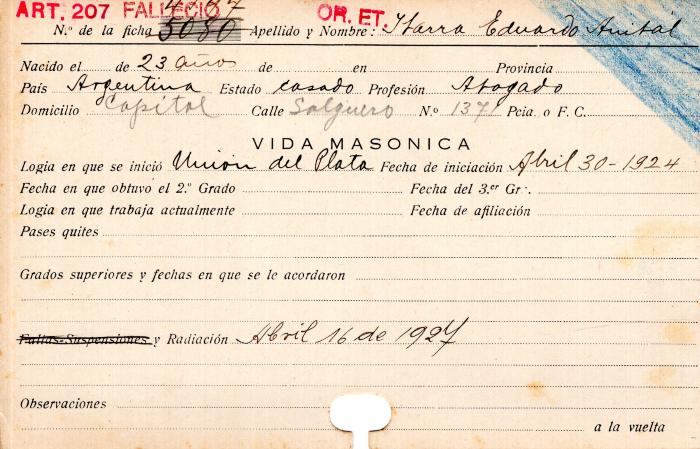 ART. 207 FALLECIO OR. ET.
N.º de la ficha 5080 Apellido y Nombre: Ibarra Eduardo Anibal
Nacido el de 23 años de en Provincia
País Argentina Estado casado Profesión Abogado
Domicilio Capital Calle Salguero N.º 1371 Pcia. o F. C.
VIDA MASONICA
Logia en que se inició Unión del Plata Fecha de iniciación Abril 30-1924
Fecha en que obtuvo el 2.º Grado Fecha del 3.er Gr∴
Logia en que trabaja actualmente Fecha de afiliación
Pases quites
Grados superiores y fechas en que se le acordaron
Faltas-Suspensiones y Radiación Abril 16 de 1927
Observaciones
a la vuelta